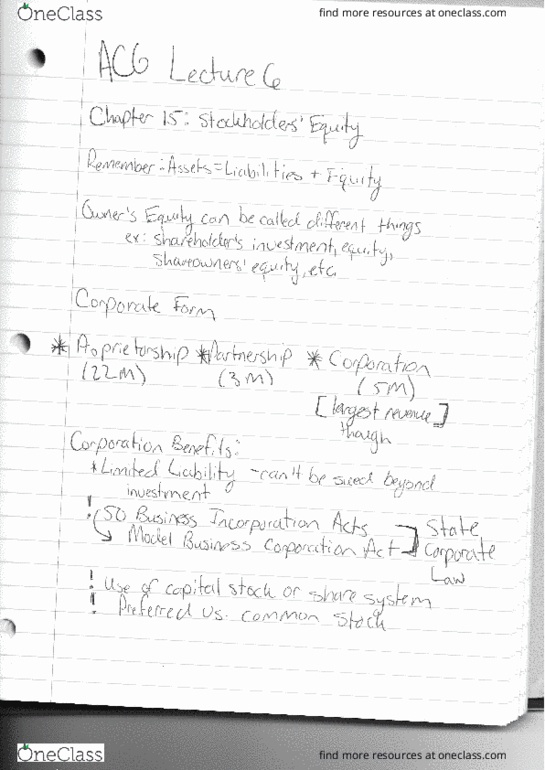 OneClass
find more resources at oneclass.com
ACG Lecture 6
Chapter 15: Stockholders' Equity
Remember: Assets = Liabilities + Equity
Owner's Equity can be called different things
ex: shareholder's investment, equity,
shareowners' equity, etc.
Corporate Form
* Proprietorship * Partnership * Corporation
(22M) (3M) (5M)
[largest revenue]
though
Corporation Benefits:
* Limited Liability - can't be sued beyond
investment
! 50 Business Incorporation Acts ] State
Model Business Corporation Act ] Corporate
Law
! Use of capital stock or share system
! Preferred vs. common stock
OneClass
find more resources at oneclass.com